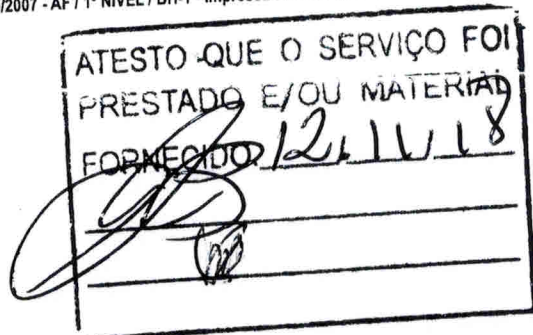 /2007 - AF / 1º NÍVEL / BH-1 - Impresso
ATESTO QUE O SERVIÇO FOI
PRESTADO E/OU MATERIAL
FORNECIDO 12, 11, 18